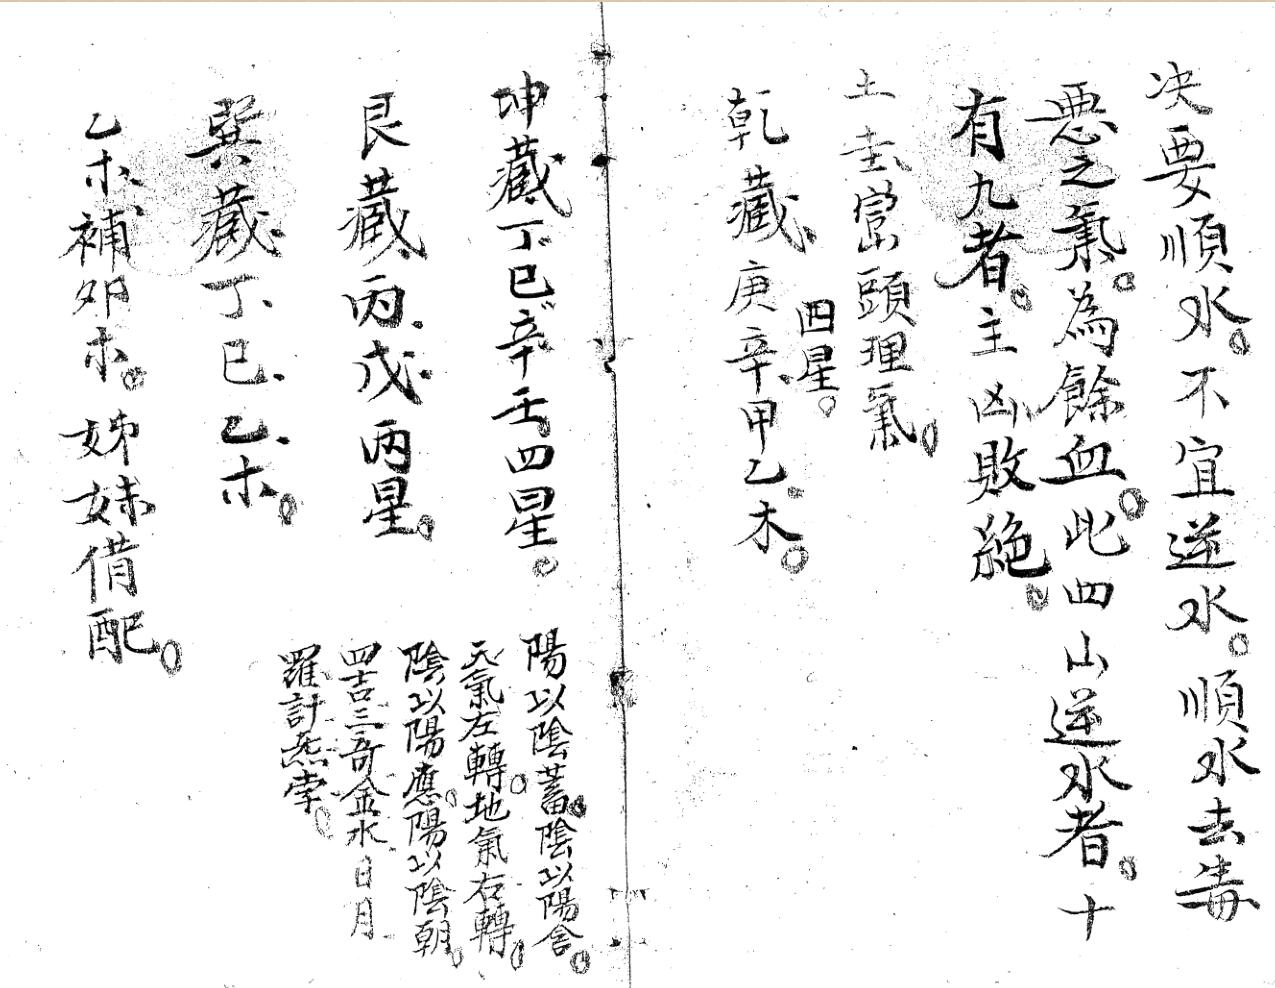 決要順水。不宜逆水。順水去毒
惡之氣。為餘血。此四山逆水者。十
有九者。主凶敗絶。
土圭巒頭理氣。
四星。
乾藏庚辛甲乙木。
坤藏丁巳辛壬四星。
艮藏丙戊丙星。
巽藏丁巳乙木。
乙木補木。姊妹借配。
陽以陰蓄。陰以陽含。
天氣左轉。地氣右轉。
陰以陽應。陽以陰朝。
四吉三奇金水日月
羅計炁孛。